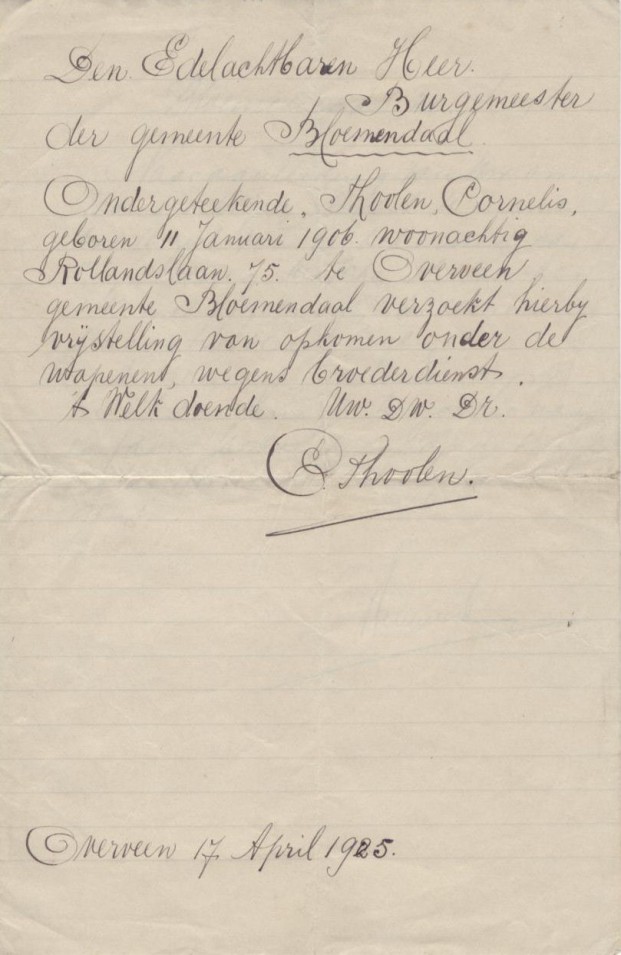 Den Edelachtbaren Heer.
Burgemeester
der gemeente Bloemendaal.
Ondergeteekende, Thoolen, Cornelis,
geboren 11 Januari 1906. woonachtig
Rollandslaan. 75. te Overveen
gemeente Bloemendaal verzoekt hierby
vrystelling van opkomen onder de
wapenen, wegens broederdienst.
't Welk doende. Uw. Dw. Dr.
C. Thoolen.
Overveen 17 April 1925.